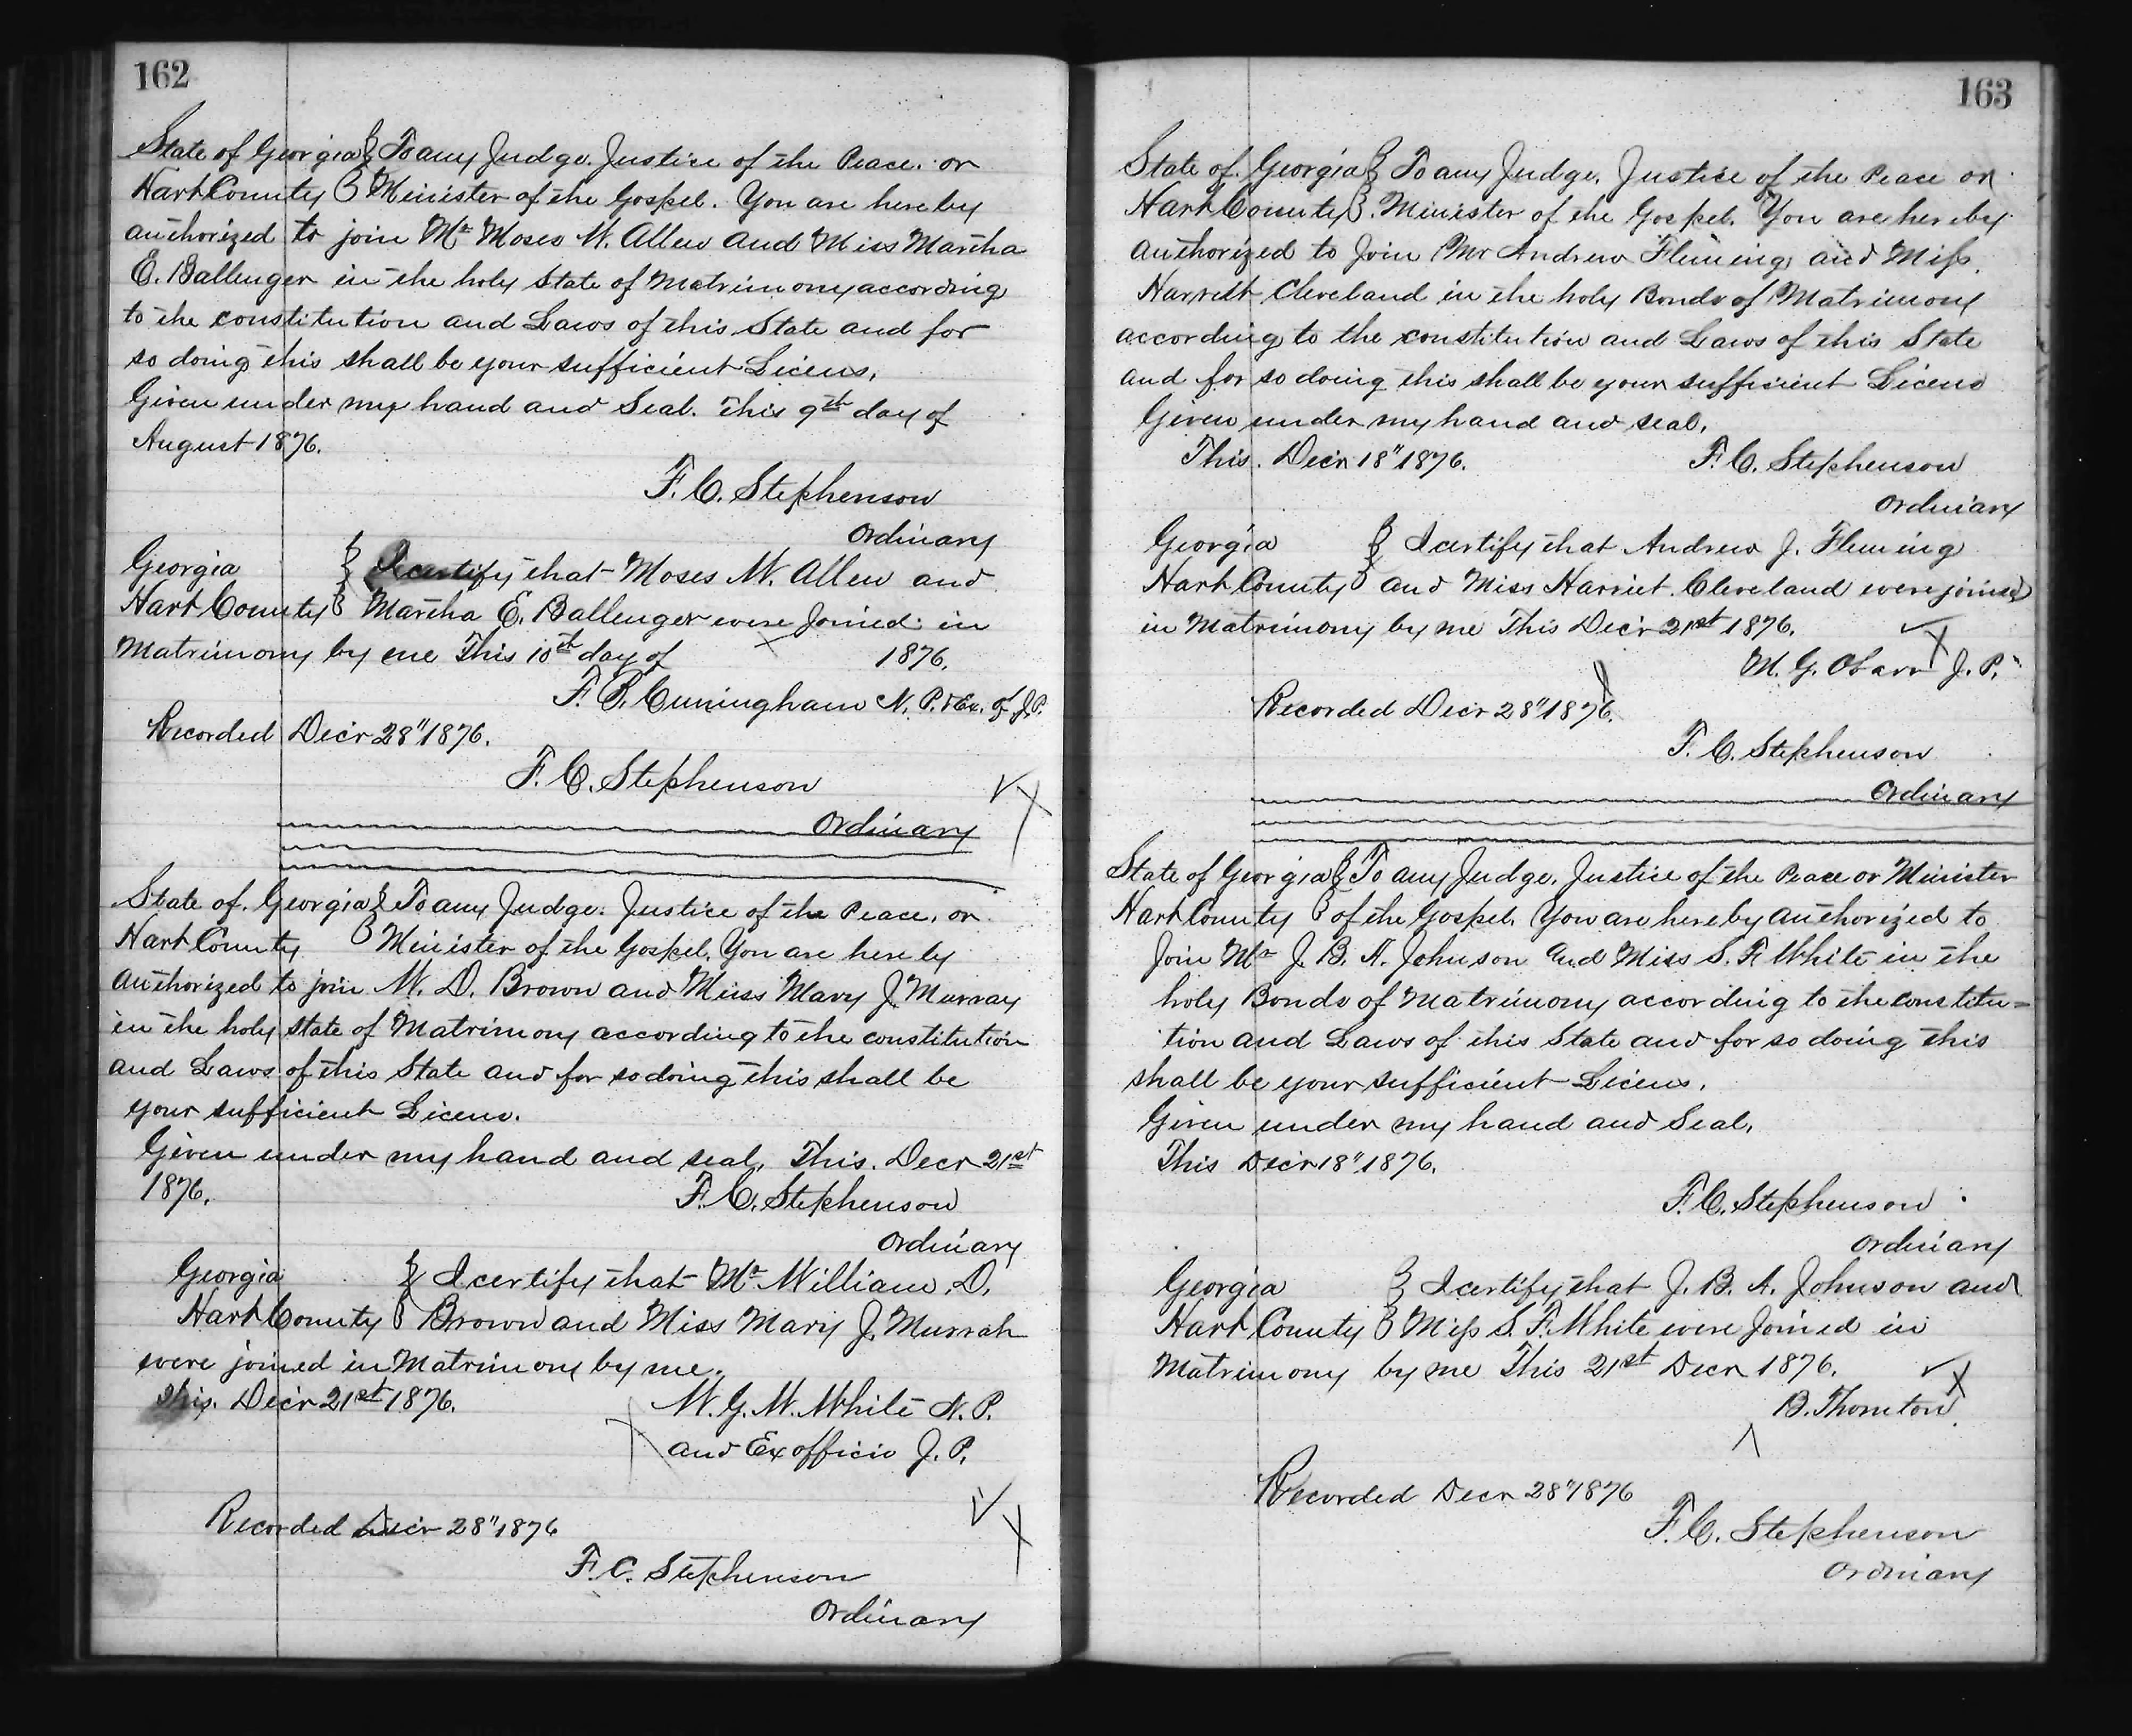 162
State of Georgia } To any Judge. Justice of the Peace. or
Hart County } Minister of the Gospel. You are hereby
authorized to join Mr Moses M. Allen and Miss Martha
E. Ballenger in the holy State of Matrimony according
to the constitution and Laws of this State and for
so doing this shall be your sufficient Licens,
Given under my hand and Seal. This 9th day of
August 1876.
F. C. Stephenson
Ordinary
Georgia } I certify that Moses M. Allen and
Hart County } Martha E. Ballenger were Joined in
Matrimony by me This 10th day of 1876.
F. B. Cuningham N. P. & Ex. of J.P.
Recorded Decr 28" 1876.
F. C. Stephenson
Ordinary
State of Georgia } To any Judge. Justice of the Peace. or
Hart County } Minister of the Gospel. You are hereby
authorized to join W. D. Brown and Miss Mary J. Murray
in the holy state of Matrimony according to the constitution
and Laws of this State and for so doing this shall be
your sufficient Licens.
Given under my hand and seal, This. Decr 21st
1876.
F. C. Stephenson
Ordinary
Georgia } I certify that Mr William. D.
Hart County } Brown and Miss Mary J. Murrah
were joined in Matrimony by me.
This. Decr 21st 1876.
W. G. W. White N. P.
and Ex officio J. P.
Recorded Decr 28" 1876
F. C. Stephenson
Ordinary
163
State of Georgia } To any Judge. Justice of the Peace or
Hart County } Minister of the Gospel. You are hereby
authorized to Join Mr Andrew Fleming and Miss
Harriet Cleveland in the holy Bonds of Matrimony
according to the constitution and Laws of this State
and for so doing this shall be your sufficient Licens
Given under my hand and seal,
This. Decr 18" 1876.
F. C. Stephenson
Ordinary
Georgia } I certify that Andrew J. Fleming
Hart County } and Miss Harriet Cleveland were joined
in Matrimony by me This Decr 21st 1876.
M. G. Obarr J. P.
Recorded Decr 28" 1876.
F. C. Stephenson
Ordinary
State of Georgia } To any Judge. Justice of the Peace or Minister
Hart County } of the Gospel. You are hereby authorized to
Join Mr J. B. A. Johnson and Miss S. F. White in the
holy Bonds of Matrimony according to the constitu=
tion and Laws of this State and for so doing this
shall be your sufficient Licens.
Given under my hand and Seal,
This Decr 18" 1876.
F. C. Stephenson
Ordinary
Georgia } I certify that J. B. A. Johnson and
Hart County } Miss S. F. White were Joined in
Matrimony by me This 21st Decr 1876.
B. Thornton
Recorded Decr 28" 1876
F. C. Stephenson
Ordinary